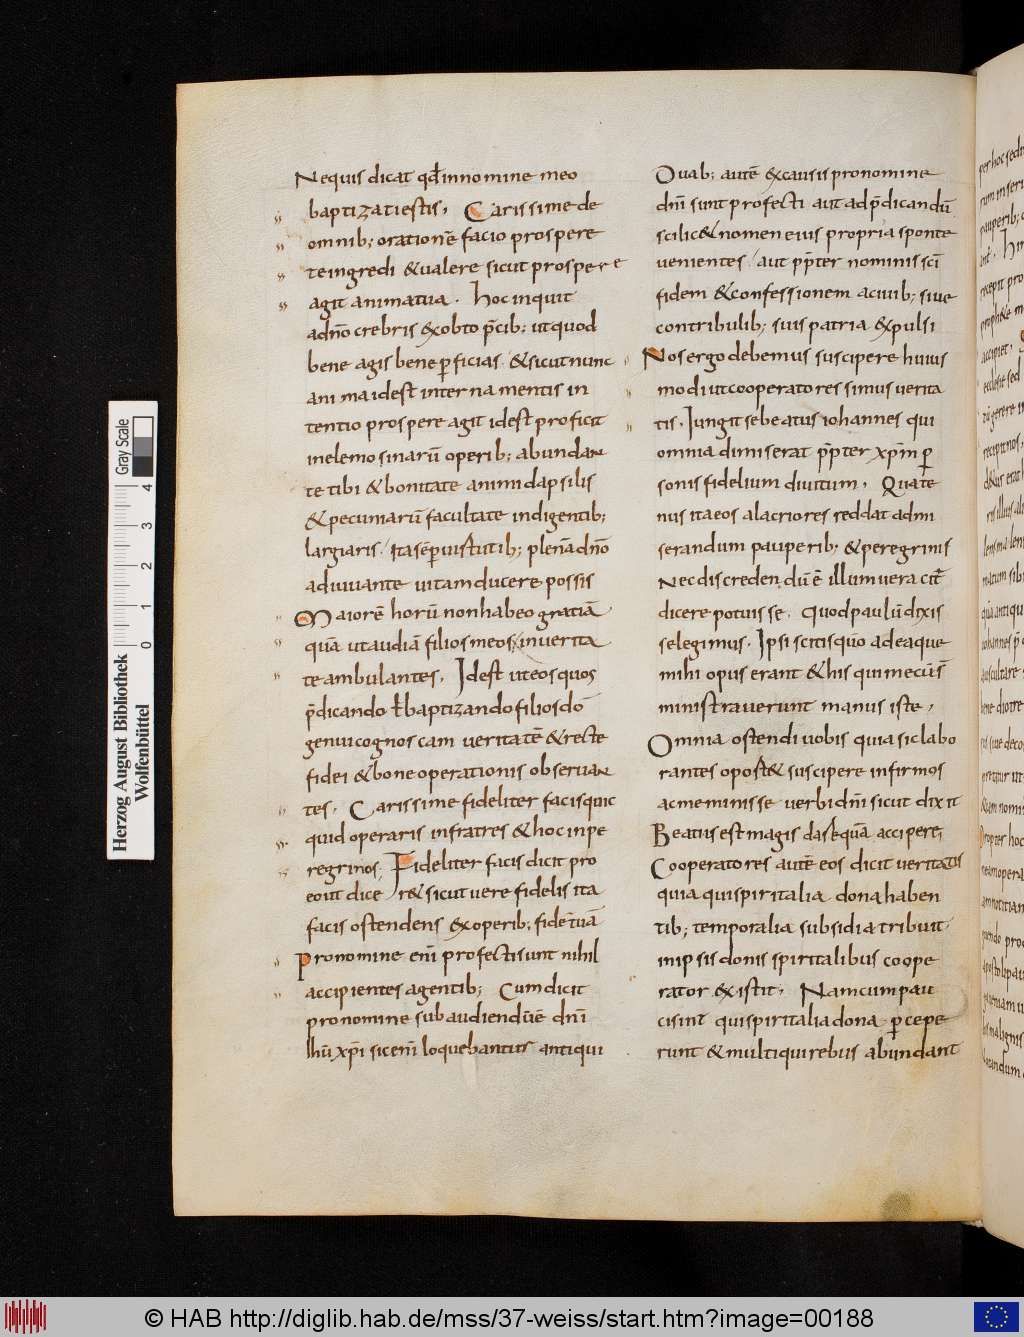 Nequis dicat qđ innomine meo
baptizati estis, Carissime de
omnib; orationē facio prospere
te ingredi & ualere sicut prospere
agit anima tua. hoc inquit
adn̄o crebris & obto p̄cib; ut quod
bene agis bene ꝑficias. & sicut nunc
anima id est interna mentis in
tentio prospere agit id est proficit
in elemosinarū operib; abundan
te tibi & bonitate animi dapsilis
& pecuniarū facultate indigentib;
largiaris. ita sēp uirtutib; plenā dn̄o
adiuuante uitam ducere possis
Maiorē horū non habeo gratiā.
quā ut audiā filios meos in uerita
te ambulantes. Id est ut eos quos
p̄dicando ł baptizando filios dō
genui cognoscam ueritatē & recte
fidei & bone operationis obseruan
tes. Carissime fideliter facis quic
quid operaris in fratres & hoc in pe
regrinos; Fideliter facis dicit pro
eo ut diceř & sicut uere fidelis ita
facis ostendens ex operib; fidē tuā
Pro nomine enī profecti sunt nihil
accipientes a gentib; Cum dicit
pro nomine subaudiendū ē dn̄i
ihū xp̄i sic enī loquebantur antiqui
Duab; autē ex causis pro nomine
dn̄i sunt profecti aut ad p̄dicandū
scilic& nomen eius propria sponte
uenientes. aut pp̄ter nominis sc̄i
fidem & confessionem a ciuib; siue
contribulib; suis patria expulsi
Nos ergo debemus suscipere huius
modi ut cooperatores simus uerita
tis. Iungit se beatus iohannes qui
omnia dimiserat pp̄ter xp̄m ꝑ
sonis fidelium diuitum, Quate
nus ita eos alacriores reddat ad mi
serandum pauperib; & peregrinis
Nec discredendū ē illum ueracit̄
dicere potuisse. quod paulū dixis
se legimus. Ipsi scitis quō ad ea que
mihi opus erant & his qui mecū s̄
ministrauerunt manus iste,
Omnia ostendi uobis quia sic labo
rantes oport& suscipere infirmos
ac meminisse uerbi dn̄i sicut dixit
Beatius est magis dare quā accipere;
Cooperatores autē eos dicit ueritatis
quia qui spiritalia dona haben
tib; temporalia subsidia tribuit
in ipsis donis spiritalibus coope
rator existit, Nam cum pau
ci sint qui spiritalia dona ꝑcepe
runt & multi qui rebus abundant
Herzog August Bibliothek
Wolfenbüttel
0 1 2 3 4
Gray Scale
© HAB http://diglib.hab.de/mss/37-weiss/start.htm?image=00188